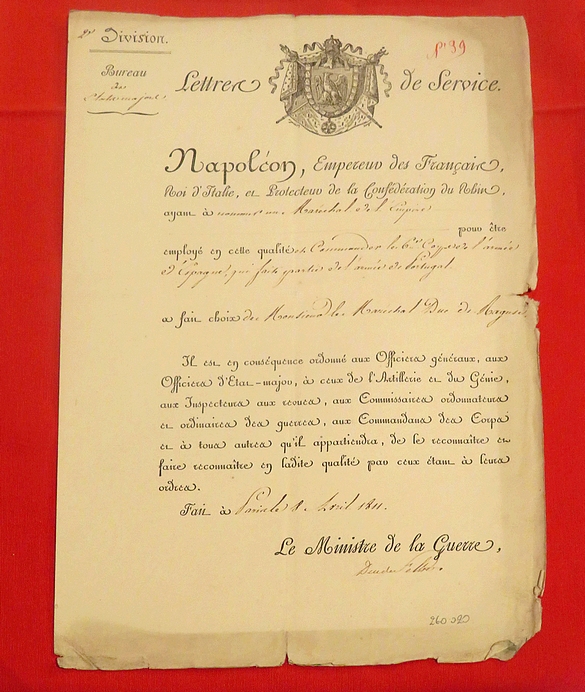 2e Division.
N° 39
Bureau
des
États-majors
Lettres de Service.
Napoléon, Empereur des Français,
Roi d'Italie, et Protecteur de la Confédération du Rhin,
ayant à nommer un Maréchal de l'Empire
pour être
employé en cette qualité et Commander le 6me Corps de l'armée
d'Espagne, qui fait partie de l'armée de Portugal.
a fait choix de Monsieur le Maréchal Duc de Raguse.
Il est en conséquence ordonné aux Officiers généraux, aux
Officiers d'État-major, à ceux de l'Artillerie et du Génie,
aux Inspecteurs aux revues, aux Commissaires ordonnateurs
et ordinaires des guerres, aux Commandans des Corps
et à tous autres qu'il appartiendra, de le reconnaître et
faire reconnaître en ladite qualité par ceux étant à leurs
ordres.
Fait à Paris le 8. Avril 1811.
Le Ministre de la Guerre,